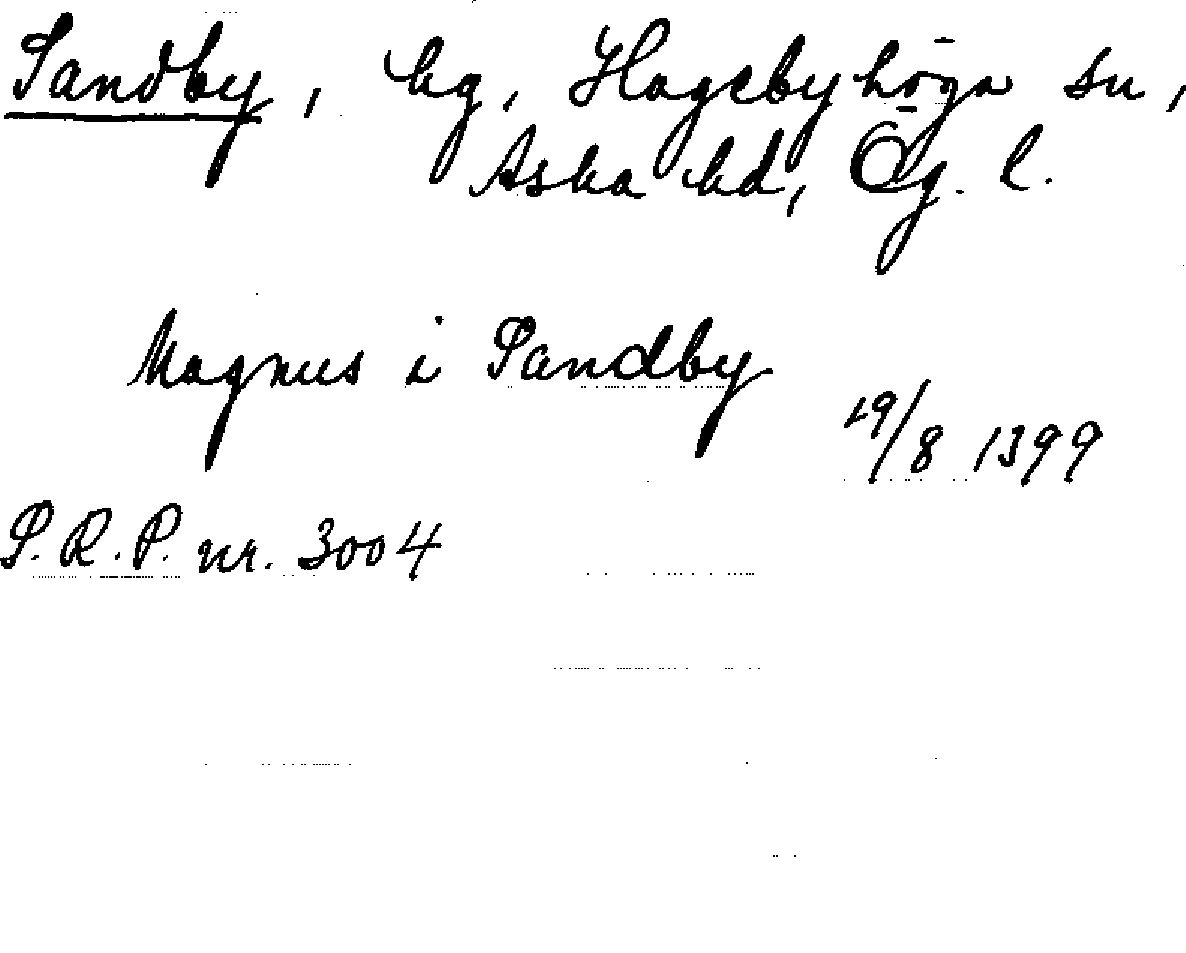 Sandby, hg, Hagebyhöga sn,
Aska hd, Ög. l.
Magnus i Sandby
19/8 1399
S.R.P. nr. 3004